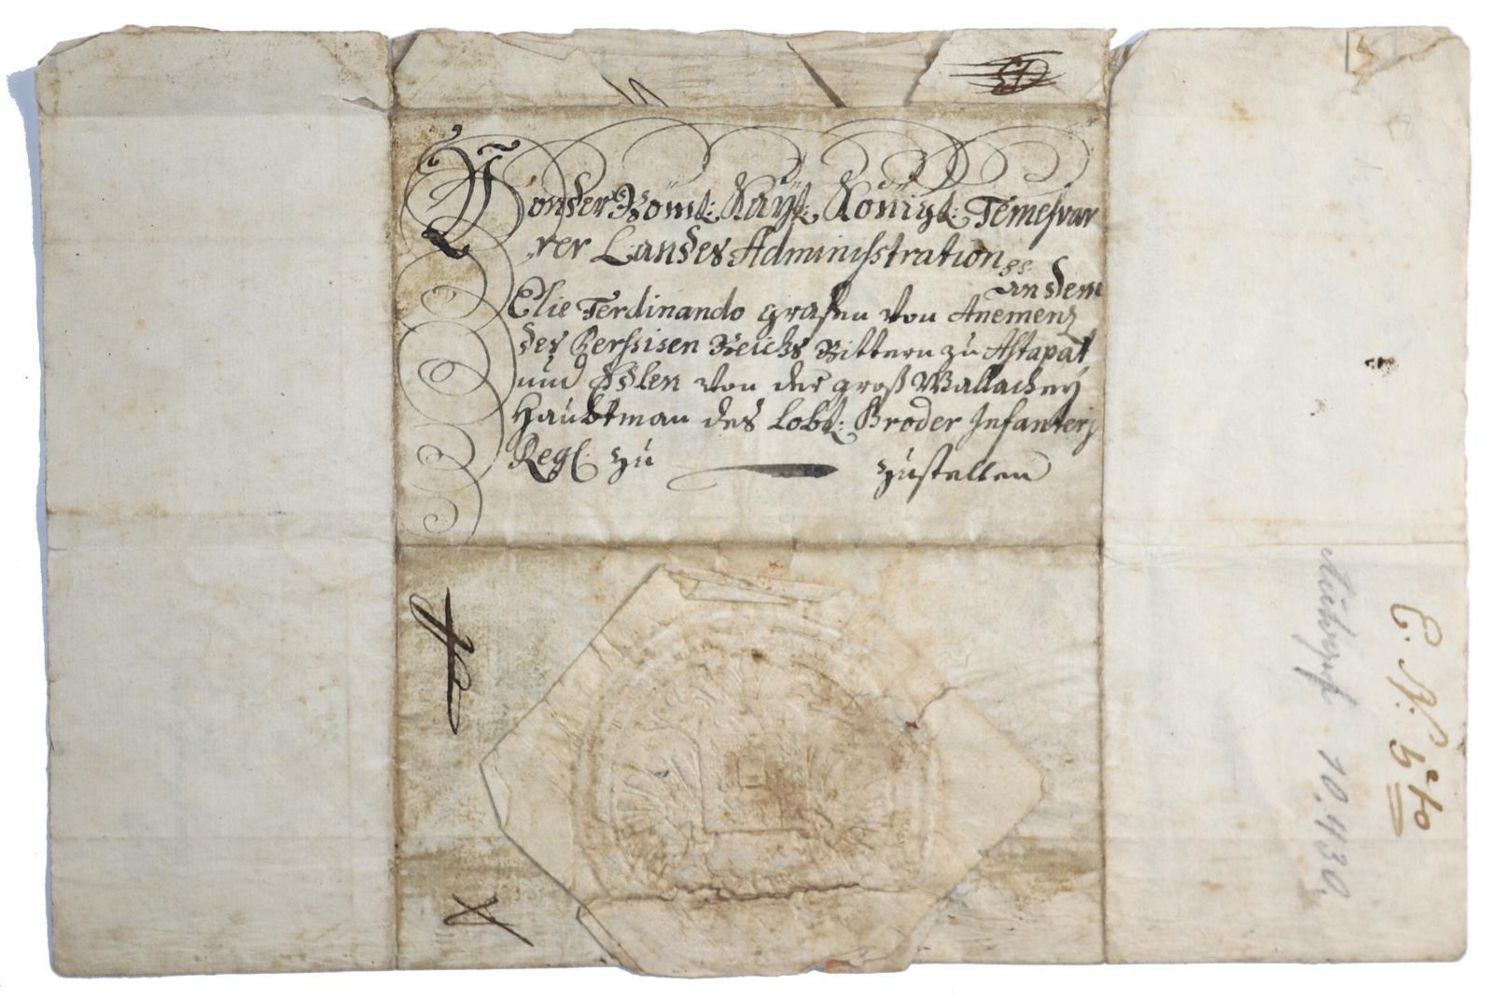 Von der Röml: Kayl: Königl: Temesvar
rer Landes Administration
an dem
Elie Ferdinando grafen von Anemenz
des Persisen Reichs Rittern zu Astapat
und von der groß Wallachey
Haubtman des Lobl: Broder Infanterj
Regl: zu zustellen
10.430.
E. N: 5to